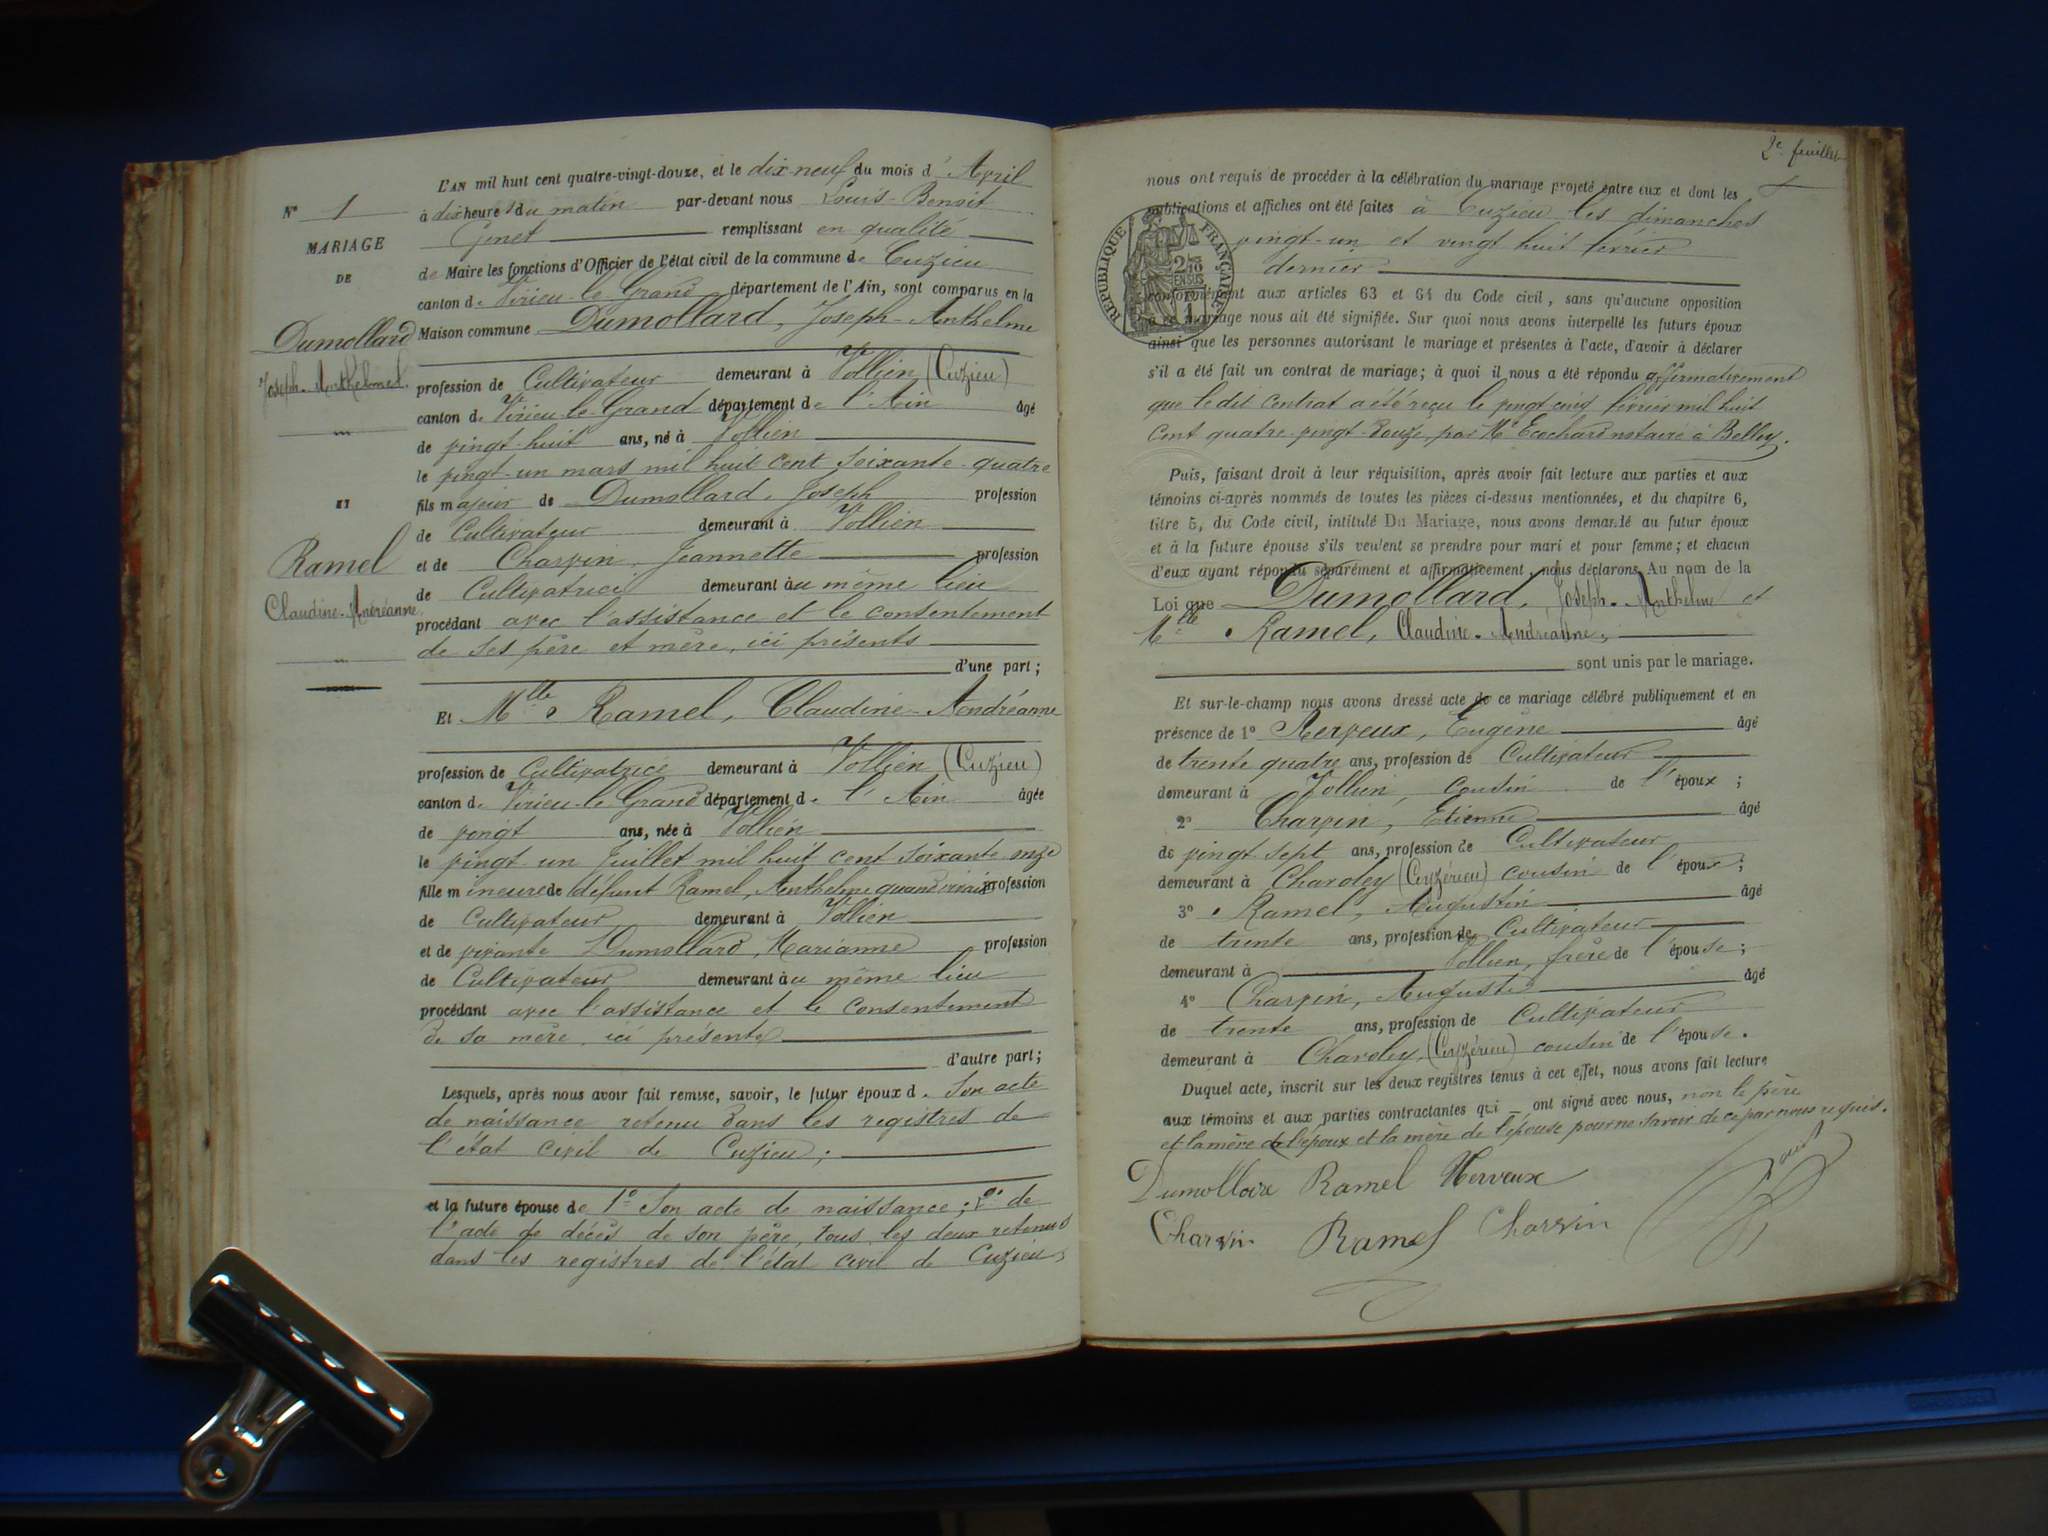 L'AN mil huit cent quatre-vingt-douze, et le dix-neuf du mois d'Avril
N° 1
à dix heures du matin par-devant nous Louis-Benoit
MARIAGE
Genet remplissant en qualité
DE
de Maire les fonctions d'Officier de l'état civil de la commune de Cuzieu
canton de Virieu-le-Grand département de l'Ain, sont comparus en la
Dumollard
Maison commune Dumollard, Joseph-Anthelme
Joseph-Anthelme
profession de Cultivateur demeurant à Vollien (Cuzieu)
canton de Virieu-le-Grand département de l'Ain âgé
de vingt-huit ans, né à Vollien
le vingt-un mars mil huit cent soixante-quatre
ET
fils majeur de Dumollard, Joseph profession
de Cultivateur demeurant à Vollien
Ramel
et de Charvin, Jeannette profession
de Cultivatrice demeurant au même lieu
Claudine-Andréanne
procédant avec l'assistance et le consentement
de ses père et mère, ici présents
d'une part ;
Et Mlle Ramel, Claudine-Andréanne
profession de Cultivatrice demeurant à Vollien (Cuzieu)
canton de Virieu-le-Grand département de l'Ain âgée
de vingt ans, née à Vollien
le vingt-un Juillet mil huit cent soixante-onze
fille mineure de défunt Ramel, Anthelme quand vivait profession
de Cultivateur demeurant à Vollien
et de vivante Dumollard, Marianne profession
de Cultivateur demeurant au même lieu
procédant avec l'assistance et le consentement
de sa mère, ici présente
d'autre part ;
Lesquels, après nous avoir fait remise, savoir, le futur époux d. Son acte
de naissance retenu dans les registres de
l'état civil de Cuzieu ;
et la future épouse de 1° Son acte de naissance ; 2° de
l'acte de décès de son père, tous les deux retenus
dans les registres de l'état civil de Cuzieu,
2e feuillet
nous ont requis de procéder à la célébration du mariage projeté entre eux et dont les
publications et affiches ont été faites à Cuzieu les dimanches
vingt-un et vingt huit février
dernier
RÉPUBLIQUE FRANÇAISE
2/10 EN SUS
conformément aux articles 63 et 64 du Code civil, sans qu'aucune opposition
à ce mariage nous ait été signifiée. Sur quoi nous avons interpellé les futurs époux
ainsi que les personnes autorisant le mariage et présentes à l'acte, d'avoir à déclarer
s'il a été fait un contrat de mariage ; à quoi il nous a été répondu affirmativement
que le dit contrat a été reçu le vingt-cinq février mil huit
cent quatre-vingt-douze, par Me Ecochard notaire à Belley.
Puis, faisant droit à leur réquisition, après avoir fait lecture aux parties et aux
témoins ci-après nommés de toutes les pièces ci-dessus mentionnées, et du chapitre 6,
titre 5, du Code civil, intitulé Du Mariage, nous avons demandé au futur époux
et à la future épouse s'ils veulent se prendre pour mari et pour femme ; et chacun
d'eux ayant répondu séparément et affirmativement, nous déclarons Au nom de la
Loi que Dumollard, Joseph-Anthelme et
Mlle Ramel, Claudine-Andréanne,
sont unis par le mariage.
Et sur-le-champ nous avons dressé acte de ce mariage célébré publiquement et en
présence de 1° Nerveux, Eugène âgé
de trente quatre ans, profession de Cultivateur
demeurant à Vollien, cousin de l'époux ;
2° Charvin, Etienne âgé
de vingt-sept ans, profession de Cultivateur
demeurant à Charoley (Ceyzérieu) cousin de l'époux ;
3° Ramel, Augustin âgé
de trente ans, profession de Cultivateur
demeurant à Vollien, frère de l'épouse ;
4° Charvin, Auguste âgé
de trente ans, profession de Cultivateur
demeurant à Charoley, (Ceyzérieu) cousin de l'épouse.
Duquel acte, inscrit sur les deux registres tenus à cet effet, nous avons fait lecture
aux témoins et aux parties contractantes qui ont signé avec nous, non le père
et la mère de l'époux et la mère de l'épouse pour ne savoir de ce par nous requis.
Dumollard Ramel Nerveux
Charvin Ramel Charvin